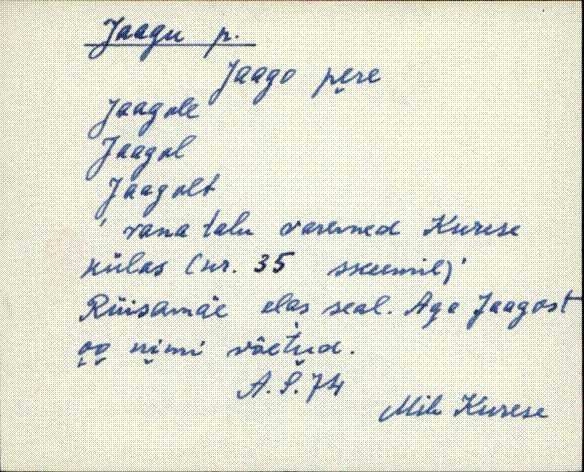 Jaagu p.
Jaago pere
Jaagole
Jaagol
Jaagolt
' vana talu varemed Kurese
külas (nr. 35 skeemil)'
Rüisamäe elas seal. Aga Jaagost
oo nimi võetud.
A.S. 74
Mih Kurese